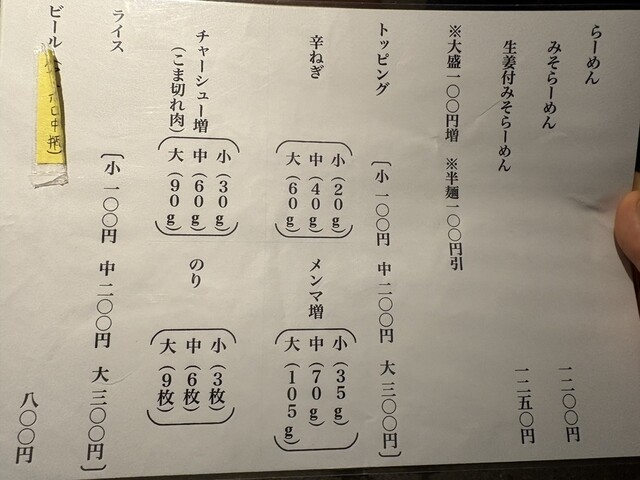 らーめん
みそらーめん
生姜付みそらーめん
一二〇〇円
一二五〇円
※大盛一〇〇円増 ※半麺一〇〇円引
トッピング 〔小 一〇〇円 中 二〇〇円 大 三〇〇円〕
辛ねぎ
小(20g)
中(40g)
大(60g)
メンマ増
小(35g)
中(70g)
大(105g)
チャーシュー増
(こま切れ肉)
小(30g)
中(60g)
大(90g)
のり
小(3枚)
中(6枚)
大(9枚)
ライス 〔小 一〇〇円 中 二〇〇円 大 三〇〇円〕
ビール 中瓶) 八〇〇円